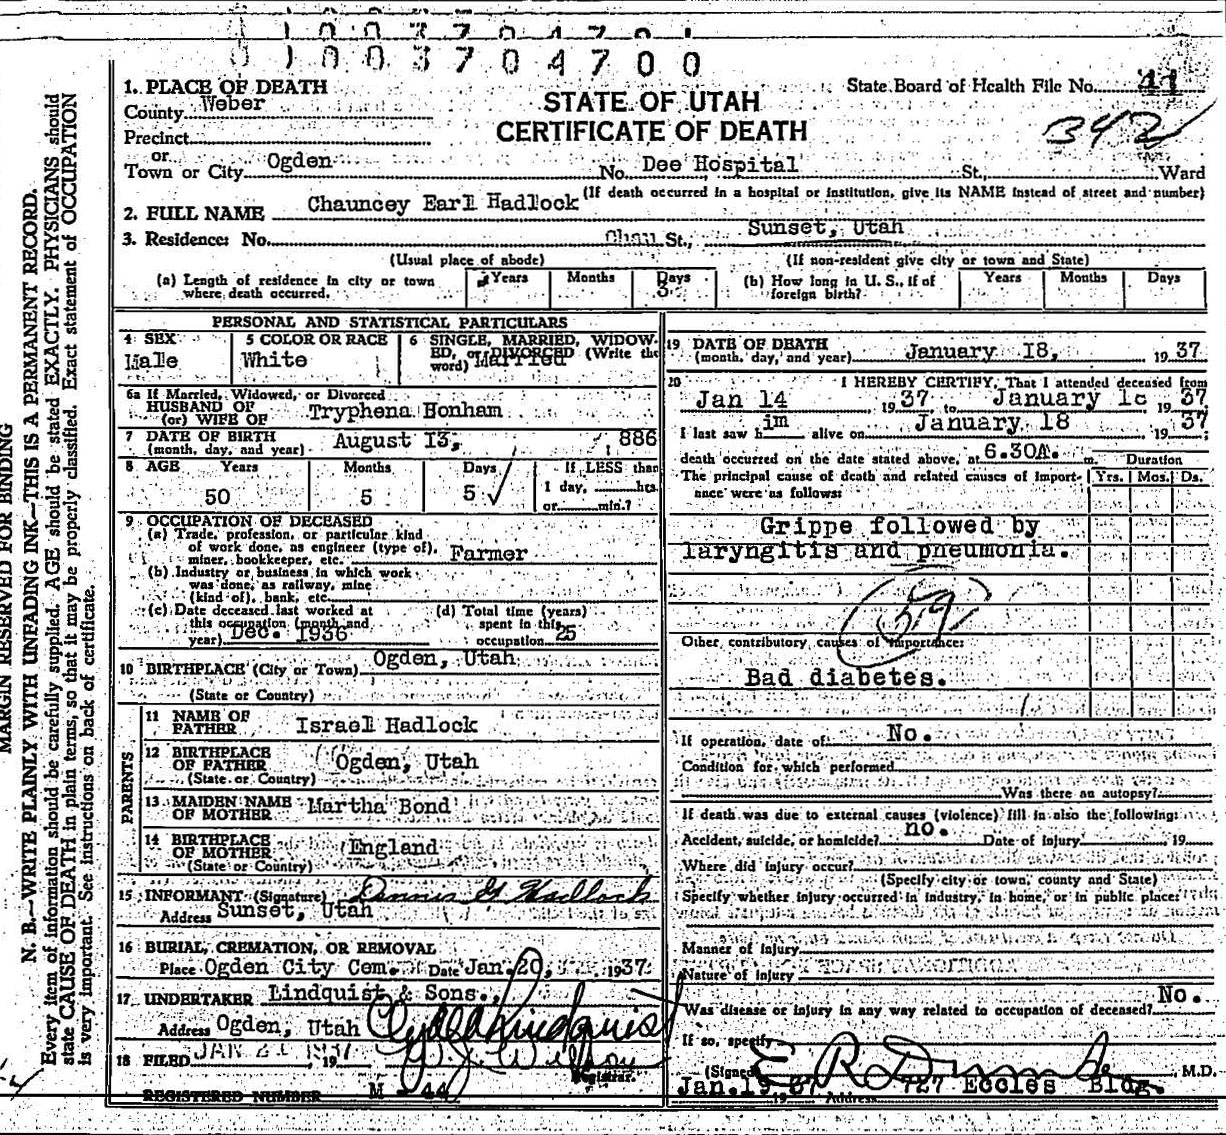 1003704700
1. PLACE OF DEATH
County Weber
Precinct
or
Town or City Ogden No. Dee Hospital St., Ward
(If death occurred in a hospital or institution, give its NAME instead of street and number)
STATE OF UTAH
CERTIFICATE OF DEATH
State Board of Health File No. 41
342
2. FULL NAME Chauncey Earl Hadlock
3. Residence: No. St., Sunset, Utah
(Usual place of abode) (If non-resident give city or town and State)
(a) Length of residence in city or town where death occurred. Years Months Days
(b) How long in U. S., if of foreign birth? Years Months Days
PERSONAL AND STATISTICAL PARTICULARS
4 SEX Male
5 COLOR OR RACE White
6 SINGLE, MARRIED, WIDOWED, or DIVORCED (Write the word) Married
6a If Married, Widowed, or Divorced
HUSBAND OF
(or) WIFE OF Tryphena Bonham
7 DATE OF BIRTH
(month, day, and year) August 13, 1886
8 AGE Years Months Days If LESS than
50 5 5 1 day, hrs.
or min.?
9 OCCUPATION OF DECEASED
(a) Trade, profession, or particular kind
of work done, as engineer (type of),
miner, bookkeeper, etc. Farmer
(b) Industry or business in which work
was done, as railway, mine
(kind of), bank, etc.
(c) Date deceased last worked at
this occupation (month and
year) Dec. 1936
(d) Total time (years)
spent in this
occupation 25
10 BIRTHPLACE (City or Town) Ogden, Utah
(State or Country)
PARENTS
11 NAME OF
FATHER Israel Hadlock
12 BIRTHPLACE
OF FATHER Ogden, Utah
(State or Country)
13 MAIDEN NAME
OF MOTHER Martha Bond
14 BIRTHPLACE
OF MOTHER England
(State or Country)
15 INFORMANT (Signature) Hadlock
Address Sunset, Utah
16 BURIAL, CREMATION, OR REMOVAL
Place Ogden City Cem. Date Jan. 20, 1937
17 UNDERTAKER Lindquist & Sons.,
Address Ogden, Utah Clyde Lindquist
18 FILED JAN 21 1937, 19 Wilson
Registrar.
REGISTERED NUMBER M 44
19 DATE OF DEATH
(month, day, and year) January 18, 1937
20 I HEREBY CERTIFY, That I attended deceased from
Jan 14 1937 to January 18 1937
I last saw him alive on January 18 1937;
death occurred on the date stated above, at 6.30A. m. Duration
The principal cause of death and related causes of importance were as follows: Yrs. Mos. Ds.
Grippe followed by
laryngitis and pneumonia.
59
Other contributory causes of importance:
Bad diabetes.
If operation, date of No.
Condition for which performed
Was there an autopsy?
If death was due to external causes (violence) fill in also the following:
Accident, suicide, or homicide? no. Date of injury 19
Where did injury occur?
(Specify city or town, county and State)
Specify whether injury occurred in industry, in home, or in public place:
Manner of injury
Nature of injury
Was disease or injury in any way related to occupation of deceased? No.
If so, specify
(Signed) E R , M.D.
Jan. 19 37 19 Address 727 Eccles Bldg.
MARGIN RESERVED FOR BINDING
N. B.—WRITE PLAINLY WITH UNFADING INK—THIS IS A PERMANENT RECORD.
Every item of information should be carefully supplied. AGE should be stated EXACTLY. PHYSICIANS should
state CAUSE OF DEATH in plain terms, so that it may be properly classified. Exact statement of OCCUPATION
is very important. See instructions on back of certificate.